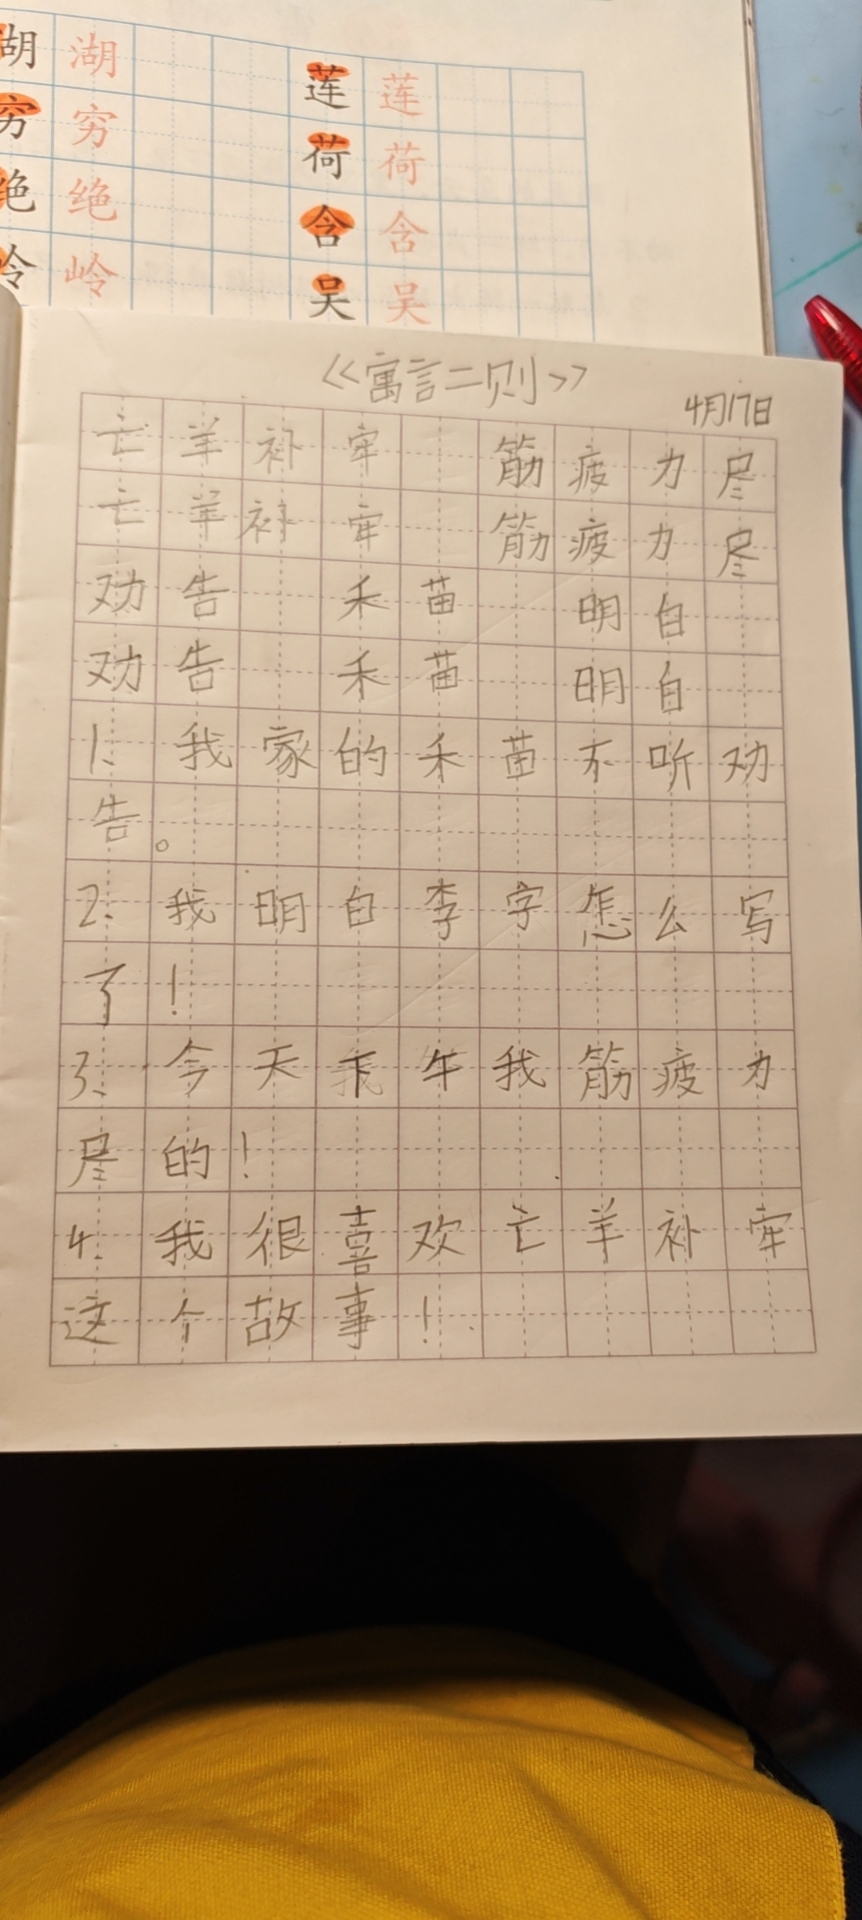 湖 湖 莲 莲
穷 穷 荷 荷
绝 绝 含 含
岭 岭 吴 吴
<<寓言二则>>
4月17日
亡羊补牢 筋疲力尽
亡羊补牢 筋疲力尽
劝告 禾苗 明白
劝告 禾苗 明白
1、我家的禾苗不听劝
告。
2、我明白李字怎么写
了!
3、今天下午我筋疲力
尽的!
4、我很喜欢亡羊补牢
这个故事!